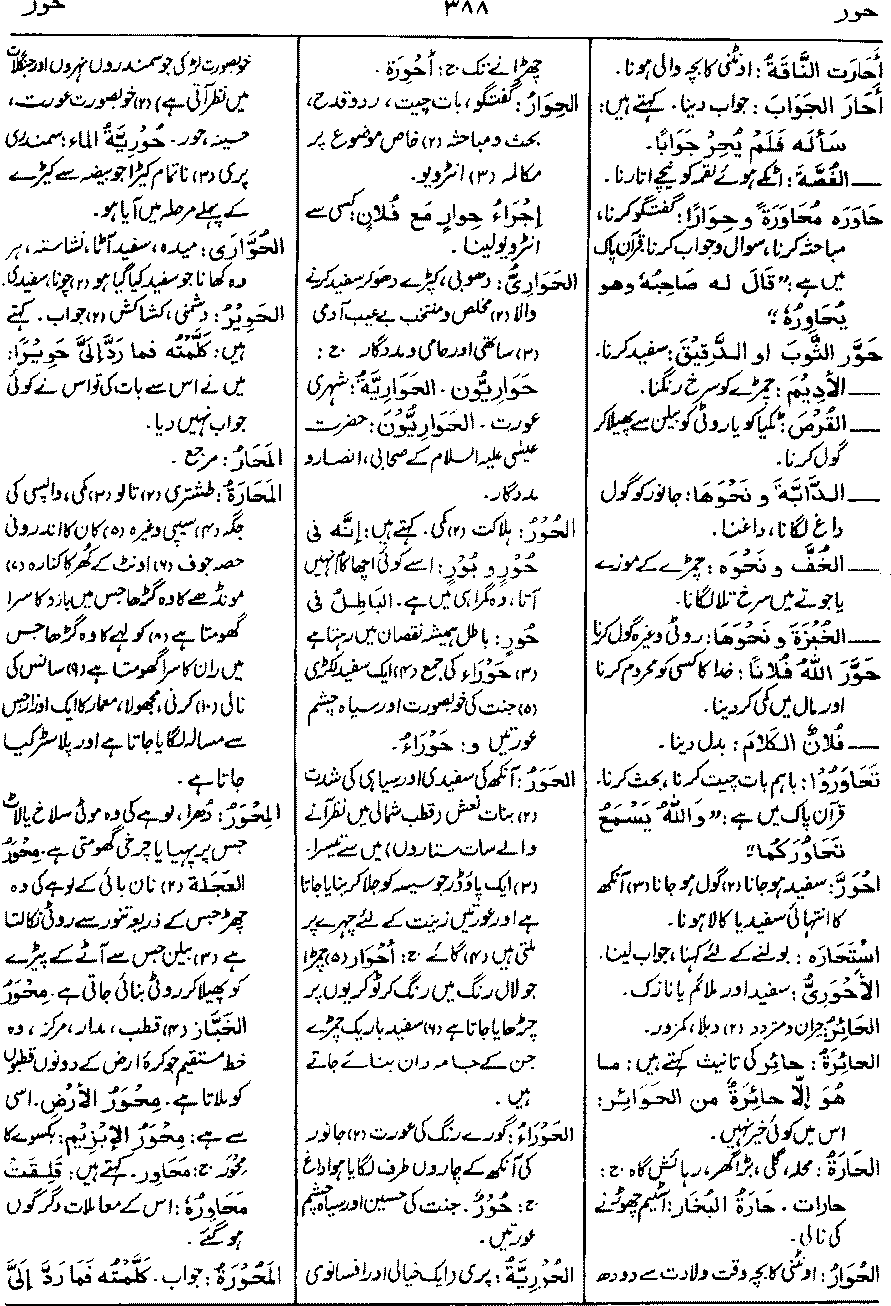 حور ۳۸۸ حور
أَحَارَت النَّاقَةُ: اونٹنی کا بچہ والی ہونا۔
أَحَارَ الجَوَابَ: جواب دینا۔ کہتے ہیں:
سَأَلَه فَلَمْ يُحِرْ جَوَابًا۔
ـــ الغُصَّةَ: اٹکے ہوئے لقمہ کو نیچے اتارنا۔
حَاوَرَه مُحَاوَرَةً وحِوَارًا: گفتگو کرنا،
مباحثہ کرنا، سوال وجواب کرنا، قرآن پاک
میں ہے: ”قَالَ لَه صَاحِبُهُ وهو
يُحَاوِرُهُ“
حَوَّر الثَّوبَ او الدَّقِيقَ: سفید کرنا۔
ـــ الأَدِيمَ: چمڑے کو سرخ رنگنا۔
ـــ القُرْصَ: ٹکیا کو یا روٹی کو بیلن سے پھیلا کر
گول کرنا۔
ـــ الدَّابَّةَ و نَحْوَهَا: جانور کو گول
داغ لگانا، داغنا۔
ـــ الخُفَّ و نَحْوَه: چمڑے کے موزے
یا جوتے میں سرخ تلا لگانا۔
ـــ الخُبْزَةَ و نَحْوَهَا: روٹی وغیرہ گول کرنا
حَوَّرَ اللهُ فُلَانًا: خدا کا کسی کو محروم کرنا
اور مال میں کمی کر دینا۔
ـــ فُلَانٌ الكَلَامَ: بدل دینا۔
تَحَاوَرُوا: باہم بات چیت کرنا، بحث کرنا۔
قرآن پاک میں ہے: ”وَاللهُ يَسْمَعُ
تَحَاوُرَكُمَا“
احْوَرَّ: سفید ہو جانا (۲) گول ہو جانا (۳) آنکھ
کا انتہائی سفید یا کالا ہونا۔
اسْتَحَارَه: بولنے کے لئے کہنا، جواب لینا۔
الأَحْوَرِيُّ: سفید اور ملائم یا نازک۔
الحَائِرُ: حیران ومتردد (۲) دبلا، کمزور۔
الحَائِرَةُ: حائر کی تانیث کہتے ہیں: ما
هُوَ إِلَّا حَائِرَةٌ من الحَوَائِرِ:
اس میں کوئی خیر نہیں۔
الحَارَةُ: محلہ، گلی، بڑا گھر، رہائش گاہ ج:
حارات۔ حَارَةُ البُخَارِ: اسٹیم چھوڑنے
کی نالی۔
الحُوَارُ: اونٹنی کا بچہ وقت ولادت سے دودھ
چھڑانے تک ج: أَحْوِرَة۔
الحِوَارُ: گفتگو، بات چیت، ردوقدح،
بحث ومباحثہ (۲) خاص موضوع پر
مکالمہ (۳) انٹرویو۔
إِجْرَاءُ حِوارٍ مَعَ فُلَانٍ: کسی سے
انٹرویو لینا۔
الحَوَارِيُّ: دھوبی، کپڑے دھو کر سفید کرنے
والا (۲) مخلص ومنتخب بے عیب آدمی
(۳) ساتھی اور حامی ومددگار ج:
حَوَارِيُّون۔ الحَوَارِيَّةُ: شہری
عورت۔ الحَوَارِيُّوْنَ: حضرت
عیسٰی علیہ السلام کے صحابی، انصار و
مددگار۔
الحُوْرُ: ہلاکت (۲) کمی۔ کہتے ہیں: إِنَّه فی
حُوْرٍ و بُوْرٍ: اسے کوئی اچھا کام نہیں
آتا، وہ گمراہی میں ہے۔ البَاطِلُ فی
حُورٍ: باطل ہمیشہ نقصان میں رہتا ہے
(۳) حَوْرَاء کی جمع (۴) ایک سفید لکڑی
(۵) جنت کی خوبصورت اور سیاہ چشم
عورتیں و: حَوْرَاءُ۔
الحَوَرُ: آنکھ کی سفیدی اور سیاہی کی شدت
(۲) بنات نعش (قطب شمالی میں نظر آنے
والے سات ستاروں) میں سے تیسرا۔
(۳) ایک پاؤڈر جو سیسہ کو جلا کر بنایا جاتا
ہے اور عورتیں زینت کے لئے چہرے پر
ملتی ہیں (۴) گائے ج: أَحْوَار (۵) چمڑا
جو لال رنگ میں رنگ کر ٹوکریوں پر
چڑھایا جاتا ہے (۶) سفید باریک چمڑے
جن کے جامہ دان بنائے جاتے
ہیں۔
الحَوْرَاءُ: گورے رنگ کی عورت (۲) جانور
کی آنکھ کے چاروں طرف لگایا ہوا داغ
ج: حُوْرٌ۔ جنت کی حسین اور سیاہ چشم
عورتیں۔
الحُوْرِيَّةُ: پری (ایک خیالی اور افسانوی
خوبصورت لڑکی جو سمندروں نہروں اور جنگلات
میں نظر آتی ہے) (۲) خوبصورت عورت،
حسینہ، حور۔ حُوْرِيَّةُ الماء: سمندری
پری (۳) ناتمام کیڑا جو بیضہ سے کیڑے
کے پہلے مرحلہ میں آیا ہو۔
الحُوَّارَى: میدہ، سفید آٹا، نشاستہ، ہر
وہ کھانا جو سفید کیا گیا ہو (۲) چونا، سفیدی۔
الحَوِيْرُ: دشمنی، کشاکش (۲) جواب۔ کہتے
ہیں: كَلَّمْتُه فما رَدَّ إِلَيَّ حَوِيْرًا:
میں نے اس سے بات کی تو اس نے کوئی
جواب نہیں دیا۔
المَحَارُ: مرجع۔
المَحَارَةُ: طشتری (۲) تالو (۳) کمی، واپسی کی
جگہ (۴) سیپی وغیرہ (۵) کان کا اندرونی
حصہ جوف (۶) اونٹ کے کُھر کا کنارہ (۷)
مونڈھے کا وہ گڑھا جس میں بازو کا سرا
گھومتا ہے (۸) کولہے کا وہ گڑھا جس
میں ران کا سرا گھومتا ہے (۹) سانس کی
نالی (۱۰) کرنی، مجھولا، معمار کا ایک اوزار جس
سے مسالہ لگایا جاتا ہے اور پلاسٹر کیا
جاتا ہے۔
المِحْوَرُ: دُھرا، لوہے کی وہ موٹی سلاخ یا لاٹ
جس پر پہیا یا چرخی گھومتی ہے۔ مِحْوَرُ
العَجَلة (۲) نان بائی کے لوہے کی وہ
چھڑ جس کے ذریعہ تنور سے روٹی نکالتا
ہے (۳) بیلن جس سے آٹے کے پیڑے
کو پھیلا کر روٹی بنائی جاتی ہے۔ مِحْوَرُ
الخَبَّاز (۴) قطب، مدار، مرکز، وہ
خط مستقیم جو کرۂ ارض کے دونوں قطبوں
کو ملاتا ہے۔ مِحْوَرُ الأَرْضِ۔ اسی
سے ہے: مِحْوَرُ الإِبْزِيْمِ: بکسوے کا
محور ج: مَحَاوِر۔ کہتے ہیں: قَلِقَتْ
مَحَاوِرُهُ: اس کے معاملات دگرگوں
ہو گئے۔
المَحُوْرَةُ: جواب۔ كَلَّمْتُه فَمَا رَدَّ إِلَيَّ